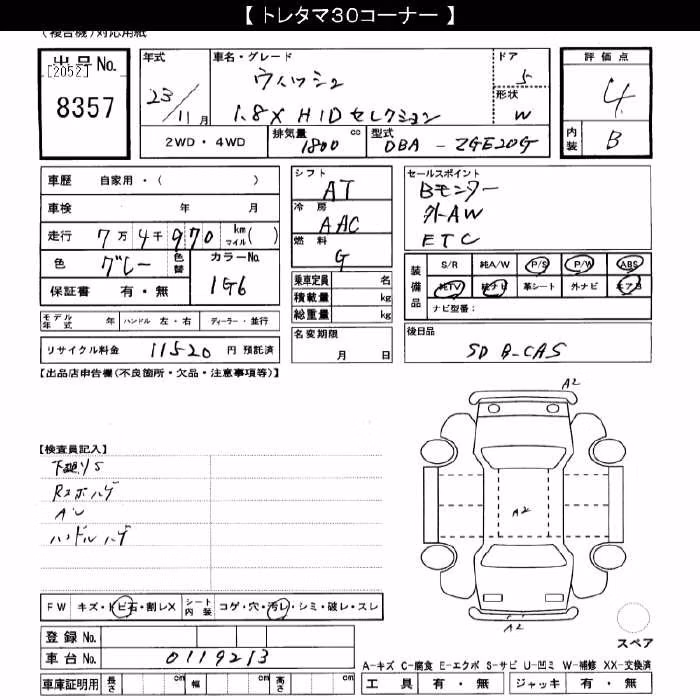 【 トレタマ30コーナー 】
(複合機)対応用紙
出品No.
[2052]
8357
年式
23/11月
車名・グレード
ウィッシュ
1.8X HIDセレクション
ドア
5
形状
W
評価点
4
内装
B
2WD・4WD
排気量 1800 cc
型式 DBA - ZGE20G
車歴 自家用・( )
車検 年 月
走行 7万4千970 km マイル( )
色 グレー 色替
カラーNo. 1G6
保証書 有・無
シフト AT
冷房 AAC
燃料 G
乗車定員 名
積載量 kg
総重量 kg
セールスポイント
Bモニター
外AW
ETC
装備品
S/R 純A/W P/S P/W ABS
純TV 純ナビ 革シート 外ナビ エアB
ナビ型番:
モデル年式 年 ハンドル 左・右 ディーラー・並行
リサイクル料金 11520 円 預託済
名変期限
月 日
後日品
SD B-CAS
【出品店申告欄(不良箇所・欠品・注意事項等)】
【検査員記入】
ハンドルハゲ
A2
A2
A2
FW キズ・トビ石・割レX シート内装 コゲ・穴・汚レ・シミ・破レ・スレ
登録No.
車台No. 0119213
スペア
A-キズ C-腐食 E-エクボ S-サビ U-凹ミ W-補修 XX-交換済
車庫証明用 長さ cm 幅 cm 高さ cm
工具 有・無 ジャッキ 有・無